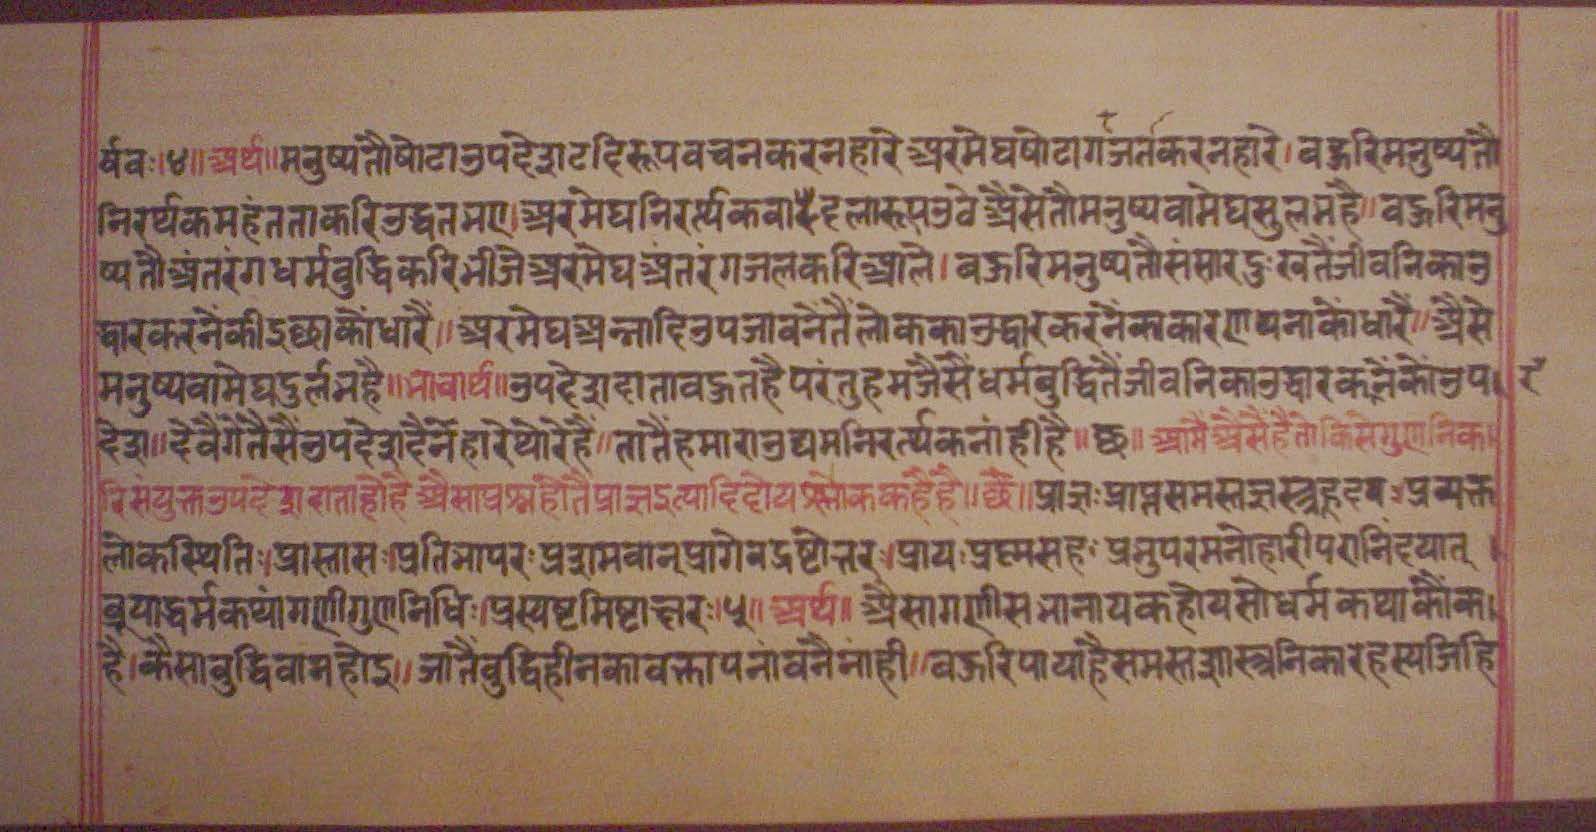 र्षवः।४॥ अर्थ॥ मनुष्यतौषोटाउपदेशदिरूपवचनकरनहारे अरमेघषोटागर्जतकरनहारे। बहुरिमनुष्यतौ
निरर्थकमहंतताकरिउद्धतभए। अरमेघनिरर्थकवादहलारूपउवे अैसेतौमनुष्यवामेघसुलभहै॥ बहुरिमनु
ष्यतौअंतरंगधर्मबुद्धिकरिभीजे अरमेघअंतरंगजलकरिआले। बहुरिमनुष्यतौसंसारदुःखतैंजीवनिकाउ
द्धारकरनेंकीइछाकौंधारैं॥ अरमेघअन्नादिउपजावनेंतैंलोककाउद्धारकरनेंकाकारणपनाकौंधारैं॥ अैसे
मनुष्यवामेघदुर्लभहै॥ भावार्थ॥ उपदेशदाताबहुतहैपरंतुहमजैसैंधर्मबुद्धितैंजीवनिकाउद्धारकरनेंकौंउप
देश॥ देवैंगेतैसैंउपदेशदैनेंहारेथोरेहैं॥ तातैंहमाराउद्यमनिरर्थकनांहीहै॥ छ॥ आगैंअैसैंहैतोकिसेगुणनिक
रिसंयुक्तउपदेशदाताहोहै अैसाप्रश्नहोतैप्राज्ञइत्यादिदोयश्लोककहैहै॥ छ॥ प्राज्ञः प्राप्तसमस्तशास्त्रहृदयः प्रव्यक्त
लोकस्थितिः। प्रास्ताशः प्रतिभापरः प्रशमवान् प्रागेवदृष्टोत्तरः। प्रायः प्रश्नसहः प्रभुपरमनोहारीपरानिंदयात्
ब्रूयाद्धर्मकथांगणीगुणनिधिः। प्रस्पष्टमिष्टाक्षरः।५॥ अर्थ॥ अैसागणीसभानायकहोयसोधर्मकथाकौंक
है। कैसाबुद्धिवानहोइ॥ जातैंबुद्धिहीनकावक्तापनांवनैनांही॥ बहुरिपायाहैसमस्तशास्त्रनिकारहस्यजिहि